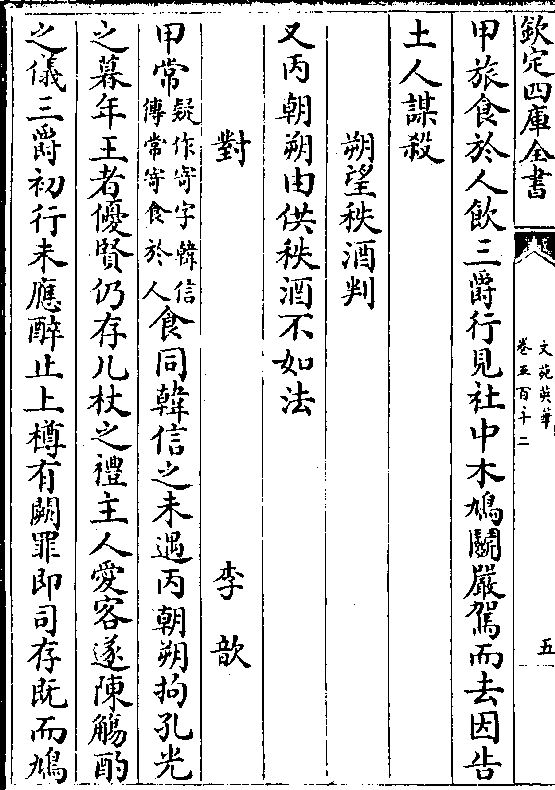 欽定四庫全書
文苑英華
卷五百十二
五
甲旅食於人飲三爵行見社中木鳩鬭嚴駕而去因告
土人謀殺
朔望秩酒判
又丙朝朔由供秩酒不如法
對 李歆
甲常疑作寄字韓信傳常寄食於人食同韓信之未遇丙朝朔拘孔光
之暮年王者優賢仍存几杖之禮主人愛客遂陳觴酌
之儀三爵初行未應醉止上樽有闕罪即司存既而鳩